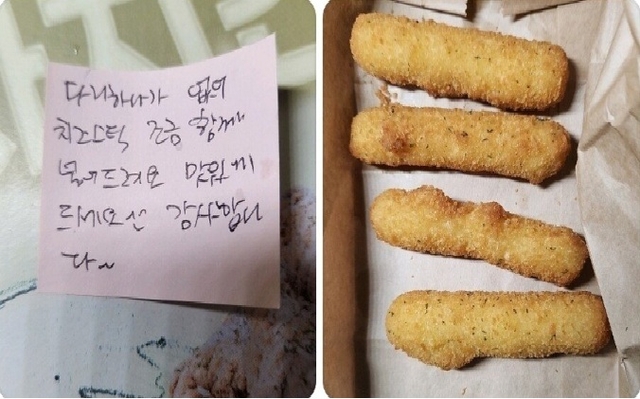 다리하나가 없어
치즈스틱 조금 함께
넣어드려요 맛있게
드세요^^ 감사합니
다~